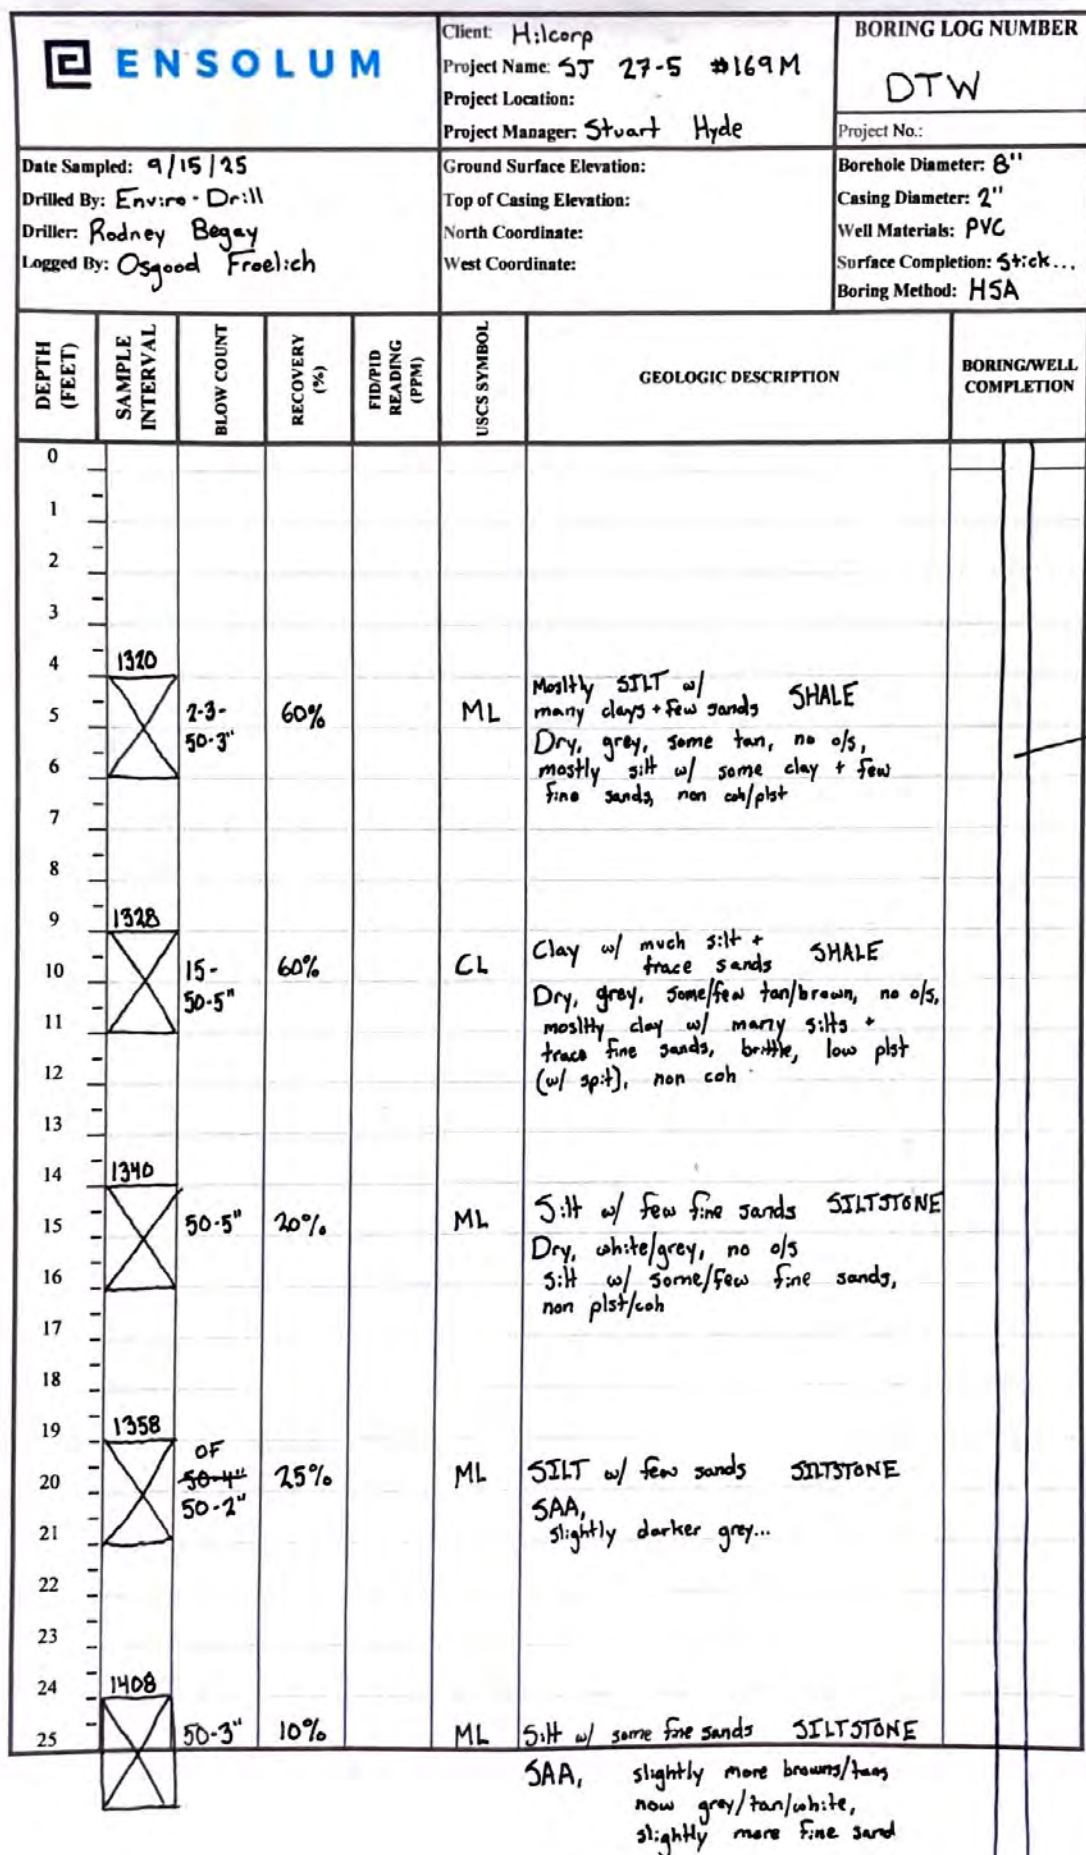 ENSOLUM
Client: Hilcorp
Project Name: SJ 27-5 #169M
Project Location:
Project Manager: Stuart Hyde
BORING LOG NUMBER
DTW
Project No.:
Date Sampled: 9/15/25
Drilled By: Enviro-Drill
Driller: Rodney Begay
Logged By: Osgood Froelich
Ground Surface Elevation:
Top of Casing Elevation:
North Coordinate:
West Coordinate:
Borehole Diameter: 8"
Casing Diameter: 2"
Well Materials: PVC
Surface Completion: Stick...
Boring Method: HSA
DEPTH (FEET)
SAMPLE INTERVAL
BLOW COUNT
RECOVERY (%)
FID/PID READING (PPM)
USCS SYMBOL
GEOLOGIC DESCRIPTION
BORING/WELL COMPLETION
0
1
2
3
4 1320
5 2-3- 60% ML Mosltly SILT w/ SHALE
50-3" many clays + few sands
Dry, grey, some tan, no o/s,
6 mostly silt w/ some clay + few
fine sands, non coh/plst
7
8
9 1328
10 15- 60% CL Clay w/ much silt + SHALE
50-5" trace sands
Dry, grey, some/few tan/brown, no o/s,
11 mosltly clay w/ many silts +
trace fine sands, brittle, low plst
12 (w/ spit), non coh
13
14 1340
15 50-5" 20% ML Silt w/ few fine sands SILTSTONE
Dry, white/grey, no o/s
16 Silt w/ some/few fine sands,
non plst/coh
17
18
19 1358
OF
20 50-4" 25% ML SILT w/ few sands SILTSTONE
50-2" SAA,
21 slightly darker grey...
22
23
24 1408
25 50-3" 10% ML Silt w/ some fine sands SILTSTONE
SAA, slightly more browns/tans
now grey/tan/white,
slightly more fine sand